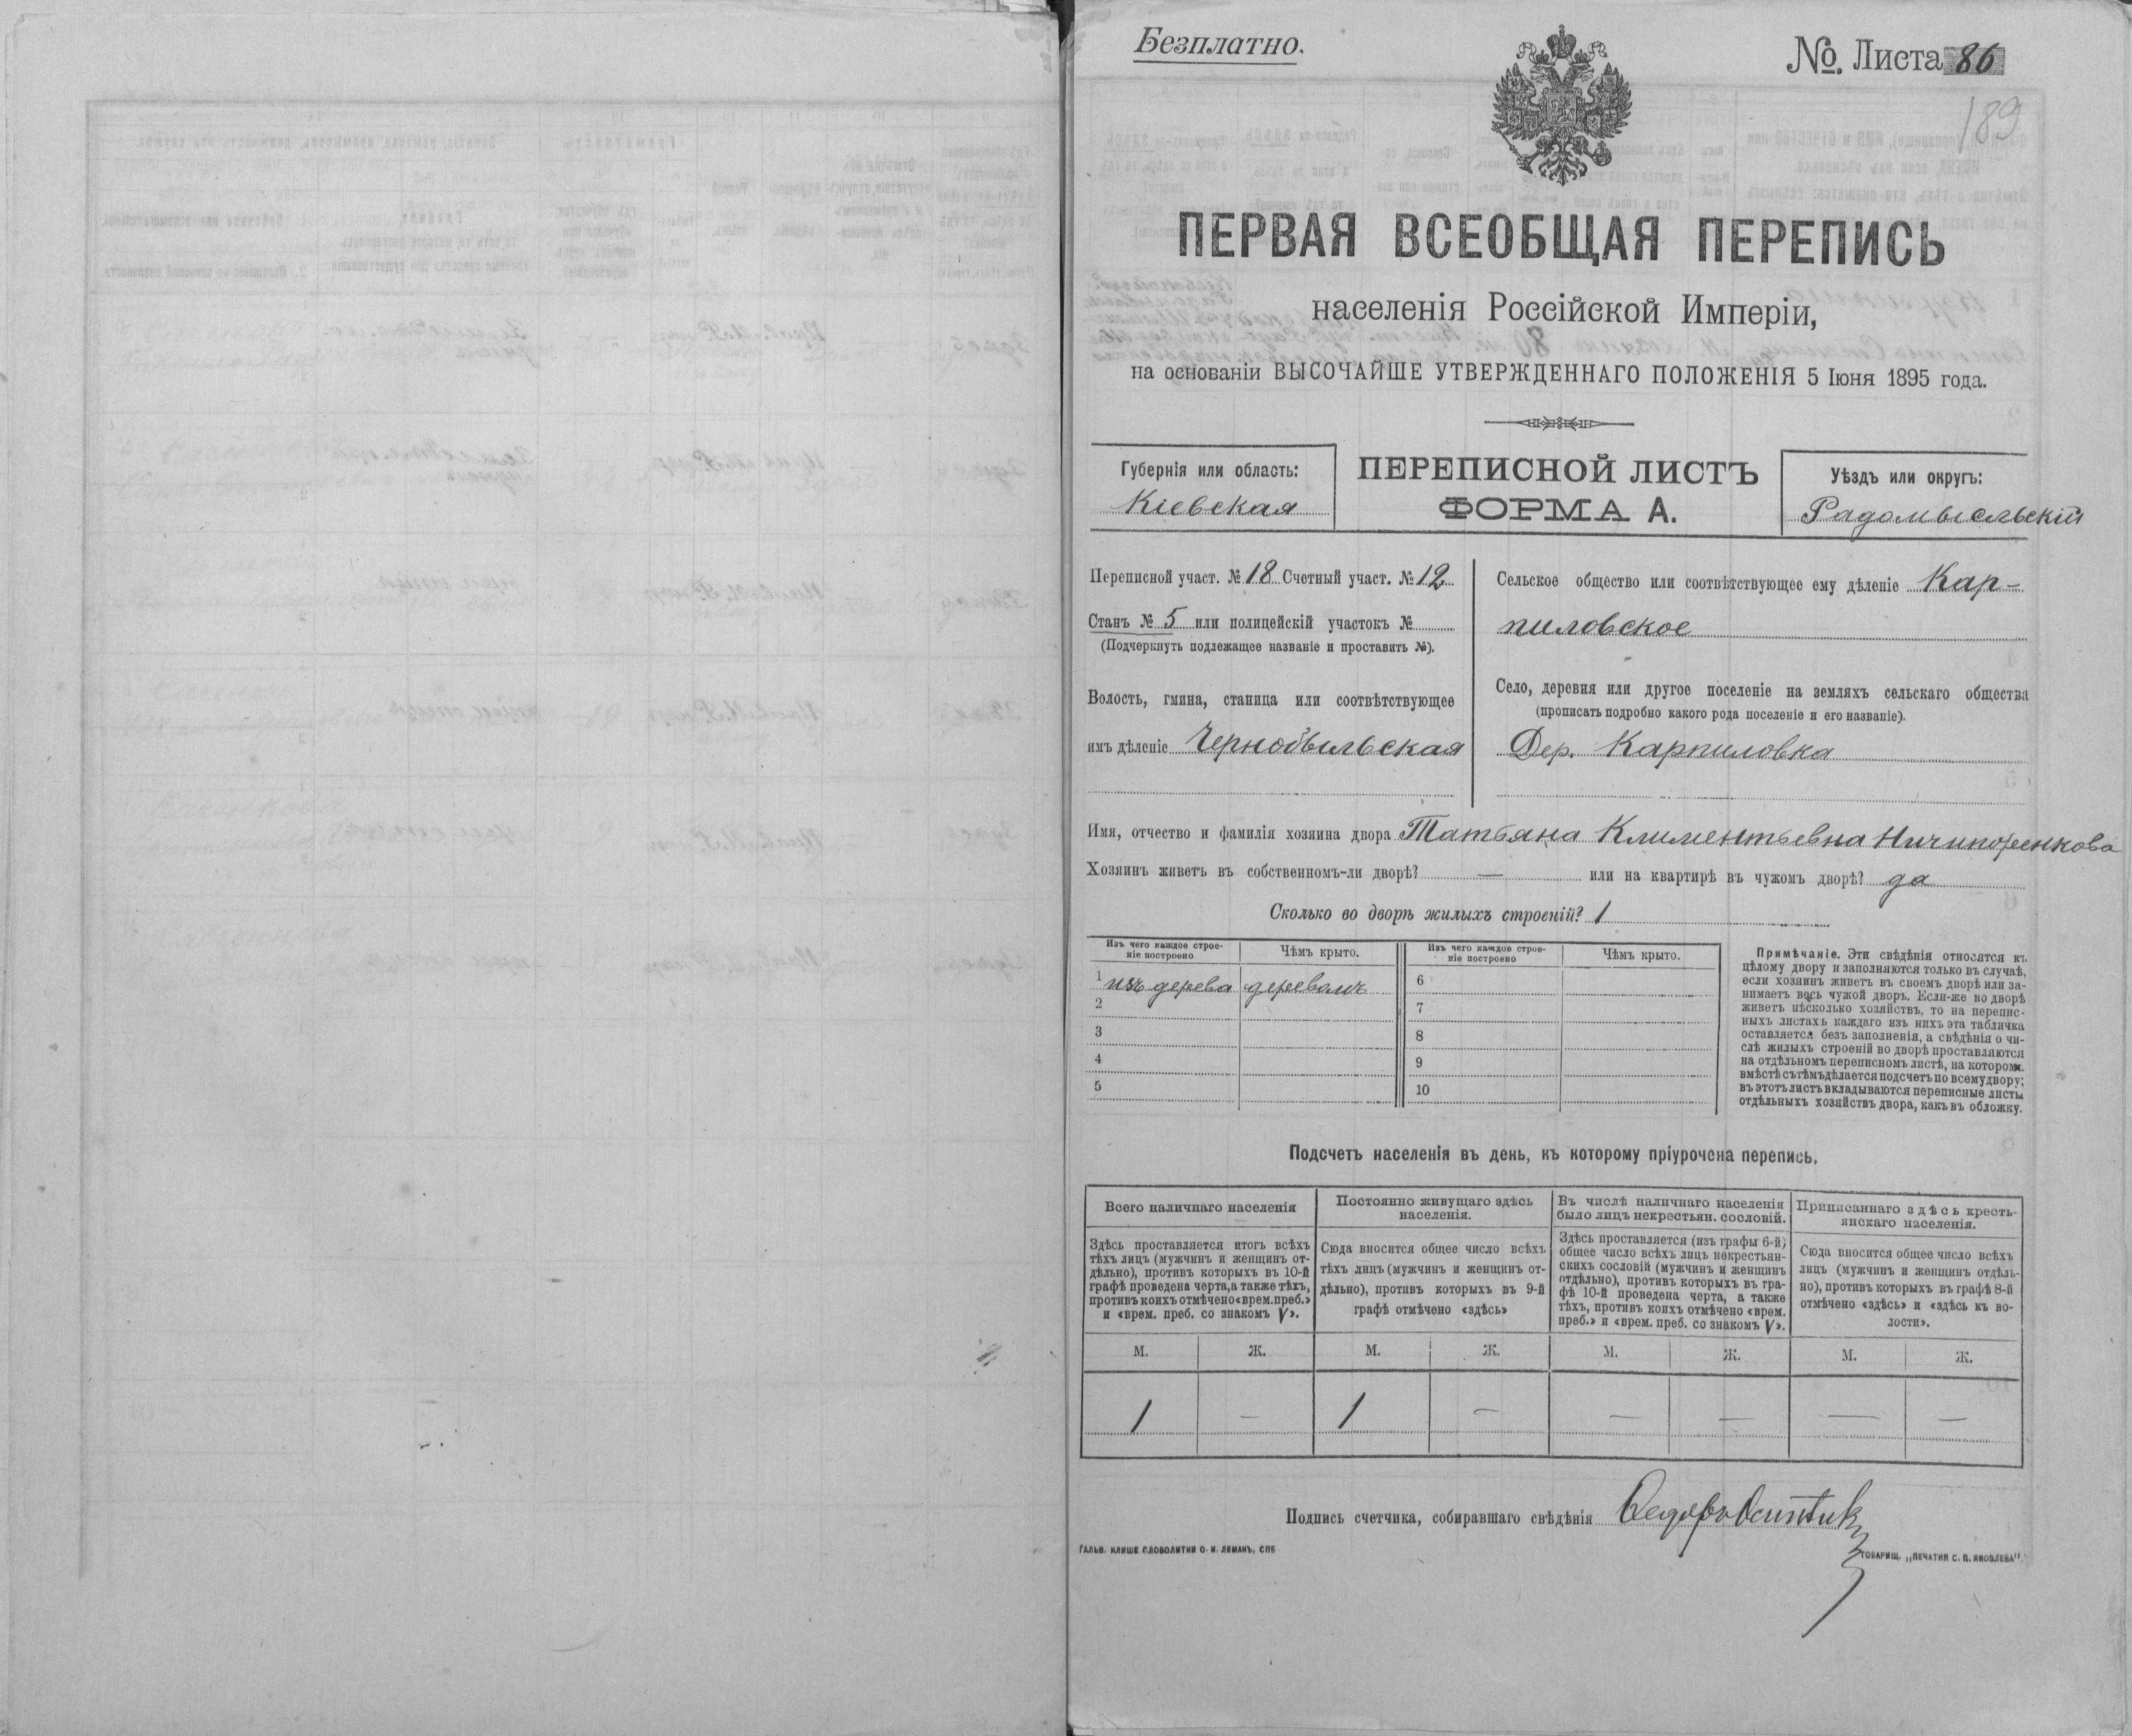 Безплатно.
№ Листа 86
189
ПЕРВАЯ ВСЕОБЩАЯ ПЕРЕПИСЬ
населенія Россійской Имперіи,
на основаніи ВЫСОЧАЙШЕ УТВЕРЖДЕННАГО ПОЛОЖЕНІЯ 5 Іюня 1895 года.
Губернія или область:
Кіевская
ПЕРЕПИСНОЙ ЛИСТЪ
ФОРМА А.
Уѣздъ или округъ:
Радомысльскій
Переписной участ. № 18 Счетный участ. № 12
Станъ № 5 или полицейскій участокъ №
(Подчеркнуть подлежащее названіе и проставить №).
Волость, гмина, станица или соотвѣтствующее
имъ дѣленіе Чернобыльская
Сельское общество или соотвѣтствующее ему дѣленіе Кар-
пиловское
Село, деревня или другое поселеніе на земляхъ сельскаго общества
(прописать подробно какого рода поселеніе и его названіе).
Дер. Карпиловка
Имя, отчество и фамилія хозяина двора Татьяна Климентьевна Ничипоренкова
Хозяинъ живетъ въ собственномъ-ли дворѣ? — или на квартирѣ въ чужомъ дворѣ? да
Сколько во дворѣ жилыхъ строеній? 1
Изъ чего каждое строе-
ніе построено
Чѣмъ крыто.
Изъ чего каждое строе-
ніе построено
Чѣмъ крыто.
1 изъ дерева деревомъ
2
3
4
5
6
7
8
9
10
Примѣчаніе. Эти свѣдѣнія относятся къ
цѣлому двору и заполняются только въ случаѣ,
если хозяинъ живетъ въ своемъ дворѣ или за-
нимаетъ весь чужой дворъ. Если-же во дворѣ
живетъ нѣсколько хозяйствъ, то на перепис-
ныхъ листахъ каждаго изъ нихъ эта табличка
оставляется безъ заполненія, а свѣдѣнія о чи-
слѣ жилыхъ строеній во дворѣ проставляются
на отдѣльномъ переписномъ листѣ, на которомъ
вмѣстѣ съ тѣмъ дѣлается подсчетъ по всему двору;
въ этотъ листъ вкладываются переписные листы
отдѣльныхъ хозяйствъ двора, какъ въ обложку.
Подсчетъ населенія въ день, къ которому пріурочена перепись.
Всего наличнаго населенія
Здѣсь проставляется итогъ всѣхъ
тѣхъ лицъ (мужчинъ и женщинъ от-
дѣльно), противъ которыхъ въ 10-й
графѣ проведена черта, а также тѣхъ,
противъ коихъ отмѣчено «врем. преб.»
и «врем. преб. со знакомъ V».
Постоянно живущаго здѣсь
населенія.
Сюда вносится общее число всѣхъ
тѣхъ лицъ (мужчинъ и женщинъ от-
дѣльно), противъ которыхъ въ 9-й
графѣ отмѣчено «здѣсь»
Въ числѣ наличнаго населенія
было лицъ некрестьян. сословій.
Здѣсь проставляется (изъ графы 6-й)
общее число всѣхъ лицъ некрестьян-
скихъ сословій (мужчинъ и женщинъ
отдѣльно), противъ которыхъ въ гра-
фѣ 10-й проведена черта, а также
тѣхъ, противъ коихъ отмѣчено «врем.
преб.» и «врем. преб. со знакомъ V».
Приписаннаго здѣсь кресть-
янскаго населенія.
Сюда вносится общее число всѣхъ
лицъ (мужчинъ и женщинъ отдѣль-
но), противъ которыхъ въ графѣ 8-й
отмѣчено «здѣсь» и «здѣсь къ во-
лости».
М. Ж. М. Ж. М. Ж. М. Ж.
1 — 1 — — — — —
Подпись счетчика, собиравшаго свѣдѣнія
ГАЛЬВ. КЛИШЕ СЛОВОЛИТНИ О. И. ЛЕМАНЪ, СПБ
ТОВАРИЩ. „ПЕЧАТНЯ С. П. ЯКОВЛЕВА"